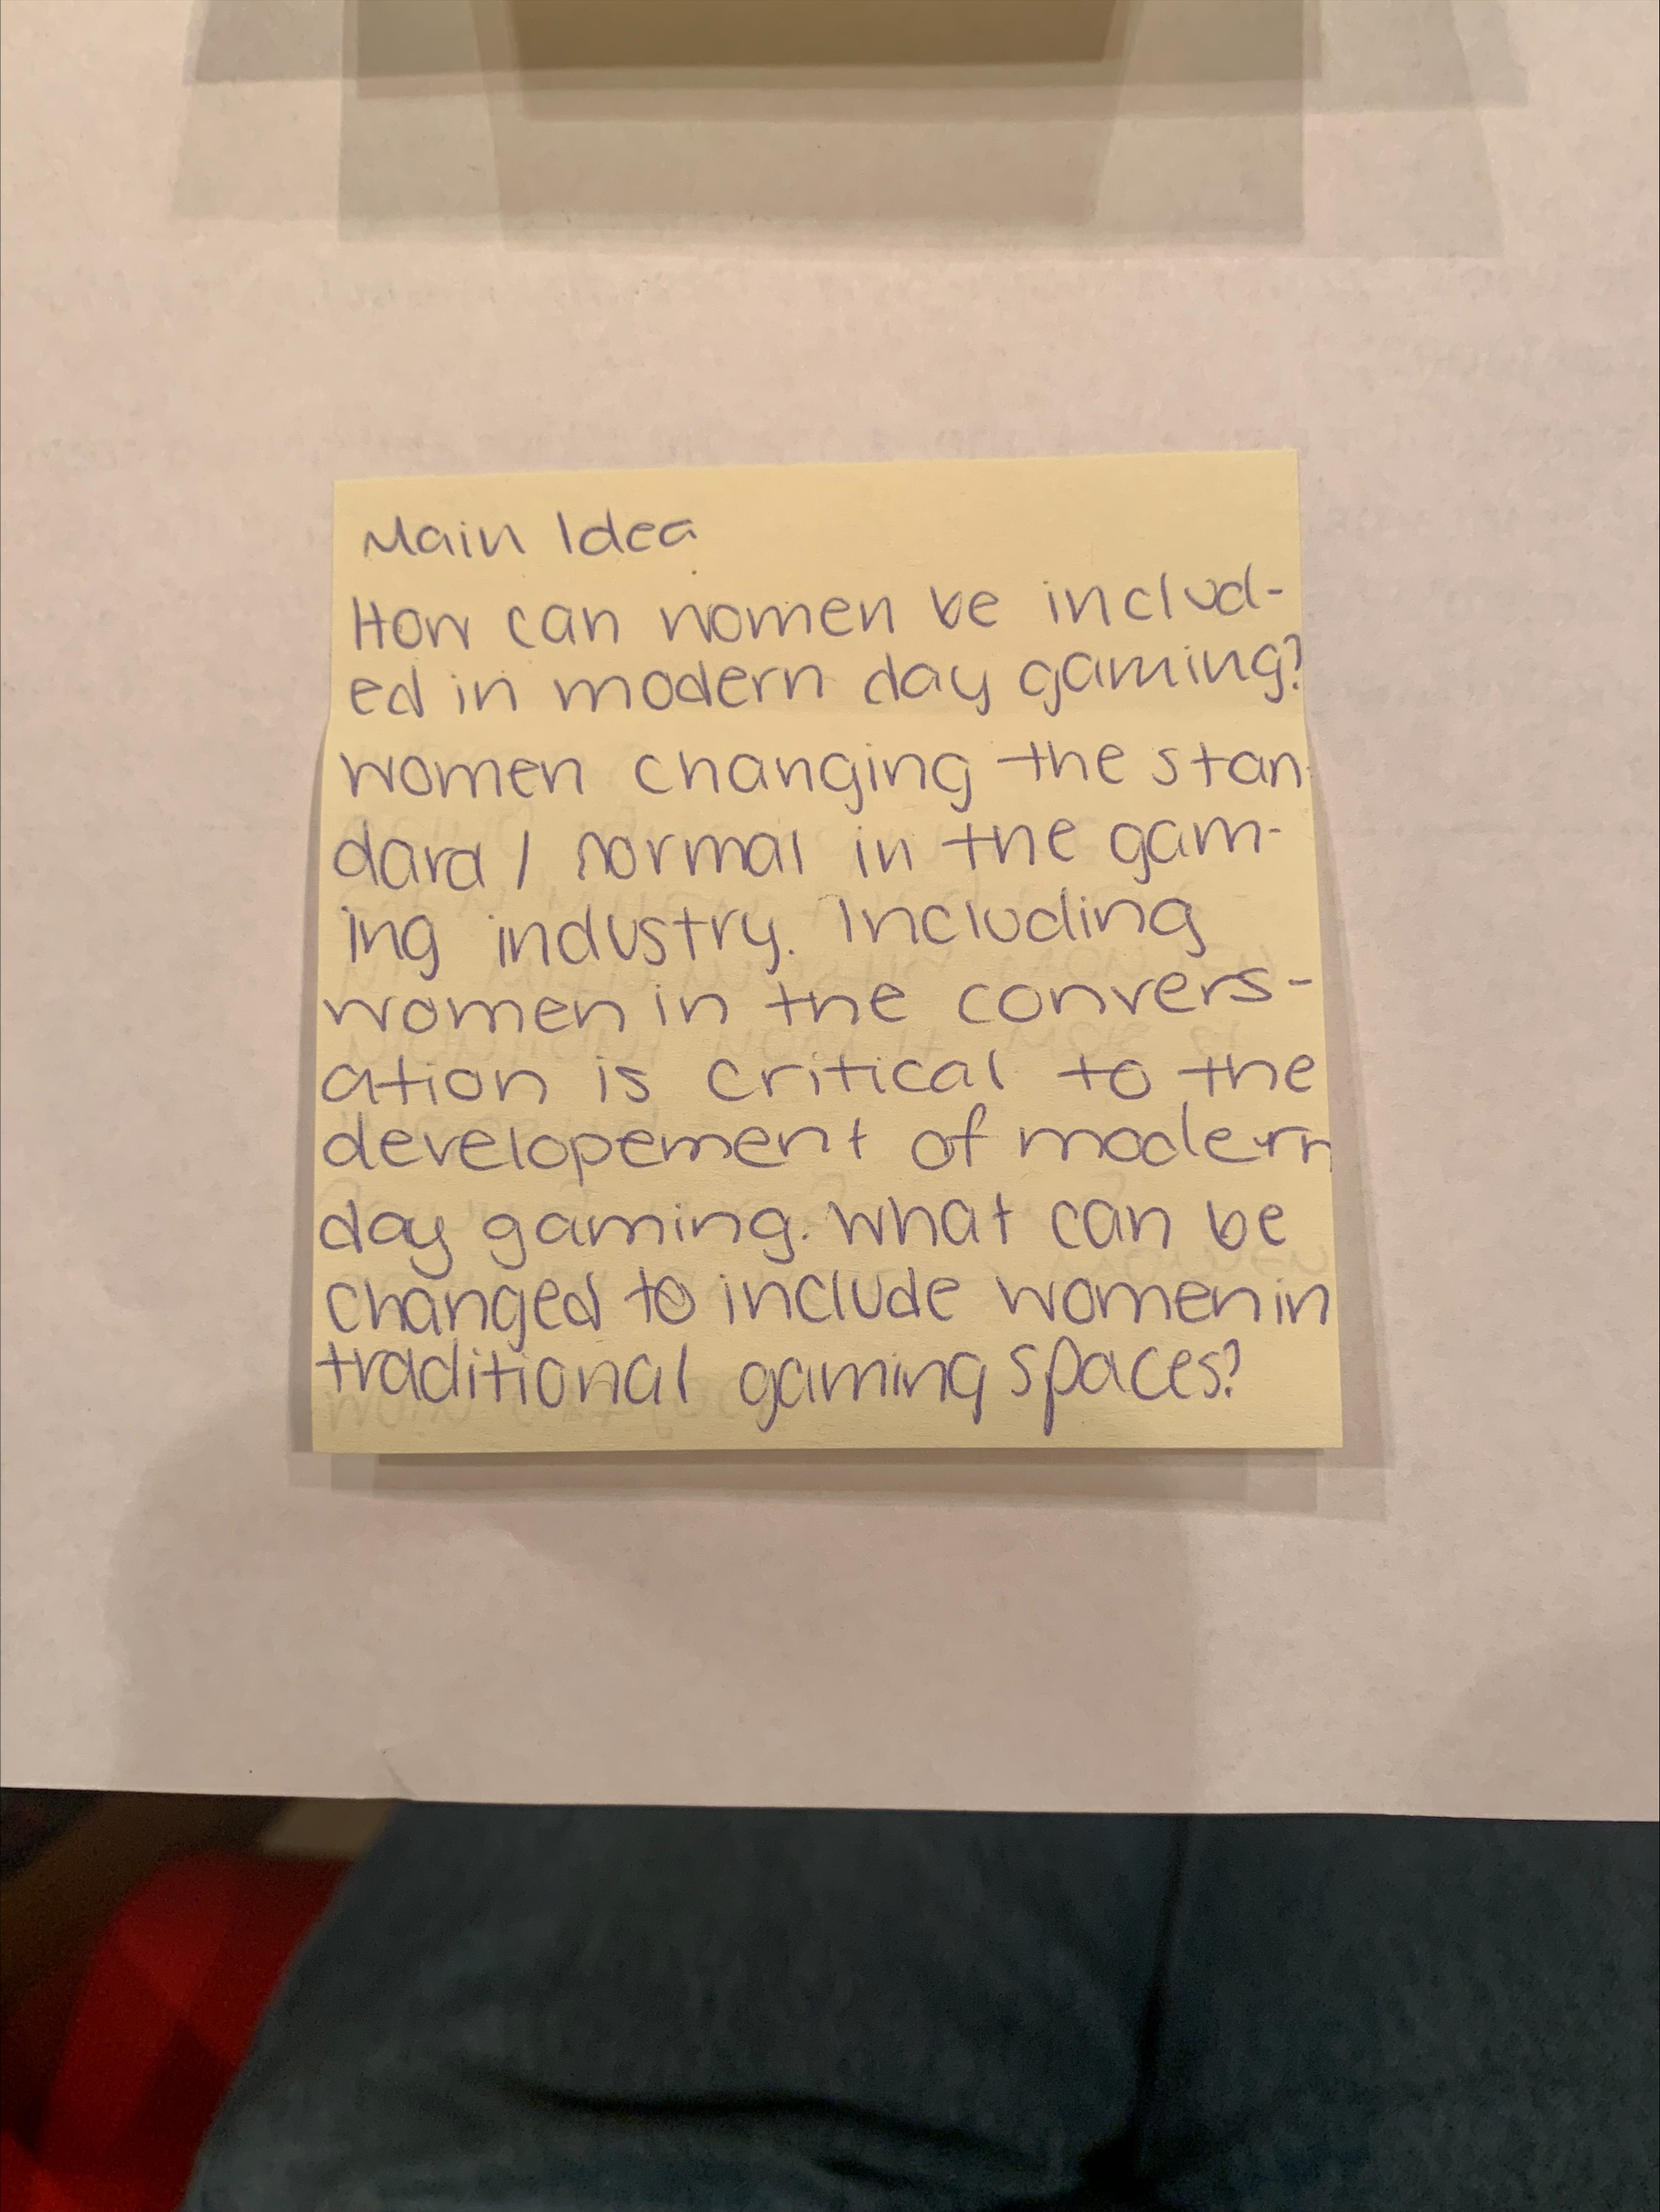 Main Idea
How can women be includ-
ed in modern day gaming?
women changing the stan-
dard / normal in the gam-
ing industry. Including
women in the convers-
ation is critical to the
developement of modern
day gaming. What can be
changed to include women in
traditional gaming spaces?